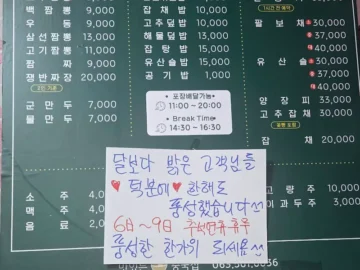 백짬뽕 9,000
우동 9,000
삼선짬뽕 11,000
고기짬뽕 11,000
짬짜 9,000
쟁반짜장 20,000
군만두 7,000
물만두 7,000
소주
맥주
음료
잡채밥 10,000
고추덮밥 10,000
해물덮밥 10,000
잡탕밥 15,000
유산슬밥 15,000
공기밥 1,000
포장배달가능
11:00 ~ 20:00
Break Time
14:30 ~ 16:30
팔보채 30,000
37,000
40,000
유산슬 30,000
37,000
40,000
양장피 33,000
고추잡채 30,000
잡채 20,000
고량주 10,000
이과두주 3,000
달보다 밝은 고객님들
덕분에 한해도
풍성했습니다
6日~9日 추석연휴휴무
풍성한 한가위 되세요